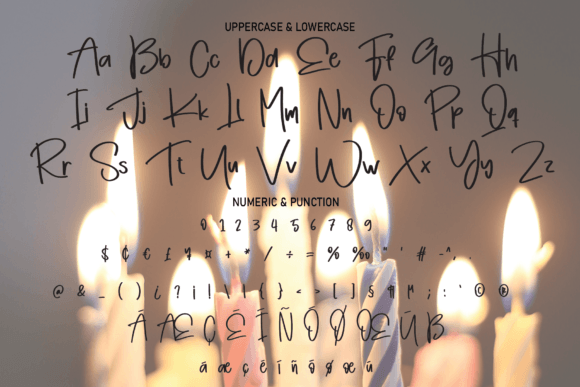 UPPERCASE & LOWERCASE
Aa Bb Cc Dd Ee Ff Gg Hh
Ii Jj Kk Ll Mm Nn Oo Pp Qq
Rr Ss Tt Uu Vv Ww Xx Yy Zz
NUMERIC & PUNCTION
0 1 2 3 4 5 6 7 8 9
$ ¢ € £ ¥ ¤ + * / ÷ = % ‰ " ' # -^, .
@ & _ ( ) ¿ ? ¡ ! \ | { } < > [ ] § ¶ µ ; : ` © ®
Ã Æ Ç É Í Ñ Ó Ø Œ Ú ß
á æ ç é í ñ ó ø œ ú